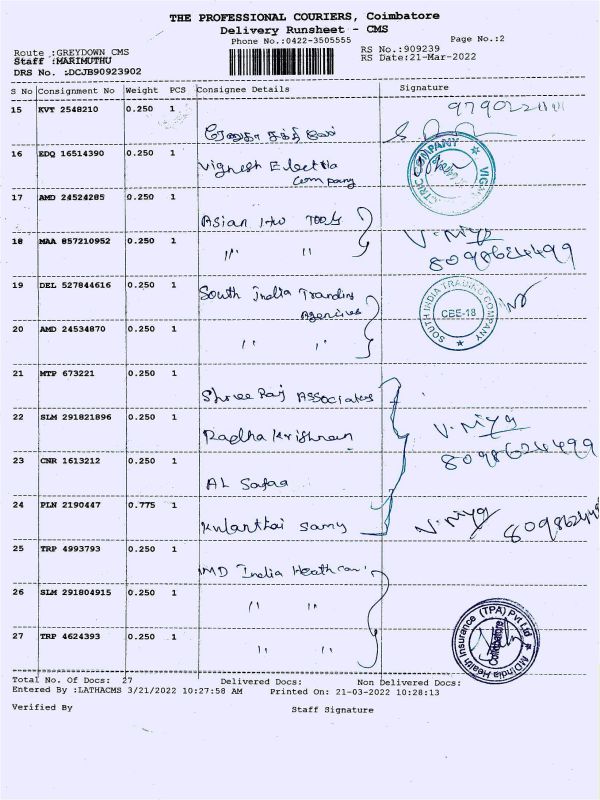 THE PROFESSIONAL COURIERS, Coimbatore
Delivery Runsheet - CMS
Phone No.:0422-3505555
Page No.:2
Route :GREYDOWN CMS
RS No.:909239
Staff :MARIMUTHU
RS Date:21-Mar-2022
DRS No. :DCJB90923902
S No Consignment No Weight PCS Consignee Details Signature
15 KVT 2548210 0.250 1
16 EDQ 16514390 0.250 1 Vignesh Electria
Company
17 AMD 24524285 0.250 1
Asian HW Tools
18 MAA 857210952 0.250 1 V. Niya
〃 〃 8098624499
19 DEL 527844616 0.250 1 South India Tranding
Agencies
SOUTH INDIA TRADING COMPANY
CBE-18
20 AMD 24534870 0.250 1
〃 〃
21 MTP 673221 0.250 1
Shree Raj Associates
22 SLM 291821896 0.250 1 V. Niya
Radha Krishnan 8098624499
23 CNR 1613212 0.250 1
AL Safaa
24 PLN 2190447 0.775 1
Kulanthai Samy V. Niya
25 TRP 4993793 0.250 1
MD India Heath care
26 SLM 291804915 0.250 1
〃 〃
27 TRP 4624393 0.250 1
〃 〃
MDIndia Health Insurance (TPA) Pvt Ltd
Coimbatore
Total No. Of Docs: 27 Delivered Docs: Non Delivered Docs:
Entered By :LATHACMS 3/21/2022 10:27:58 AM Printed On: 21-03-2022 10:28:13
Verified By Staff Signature